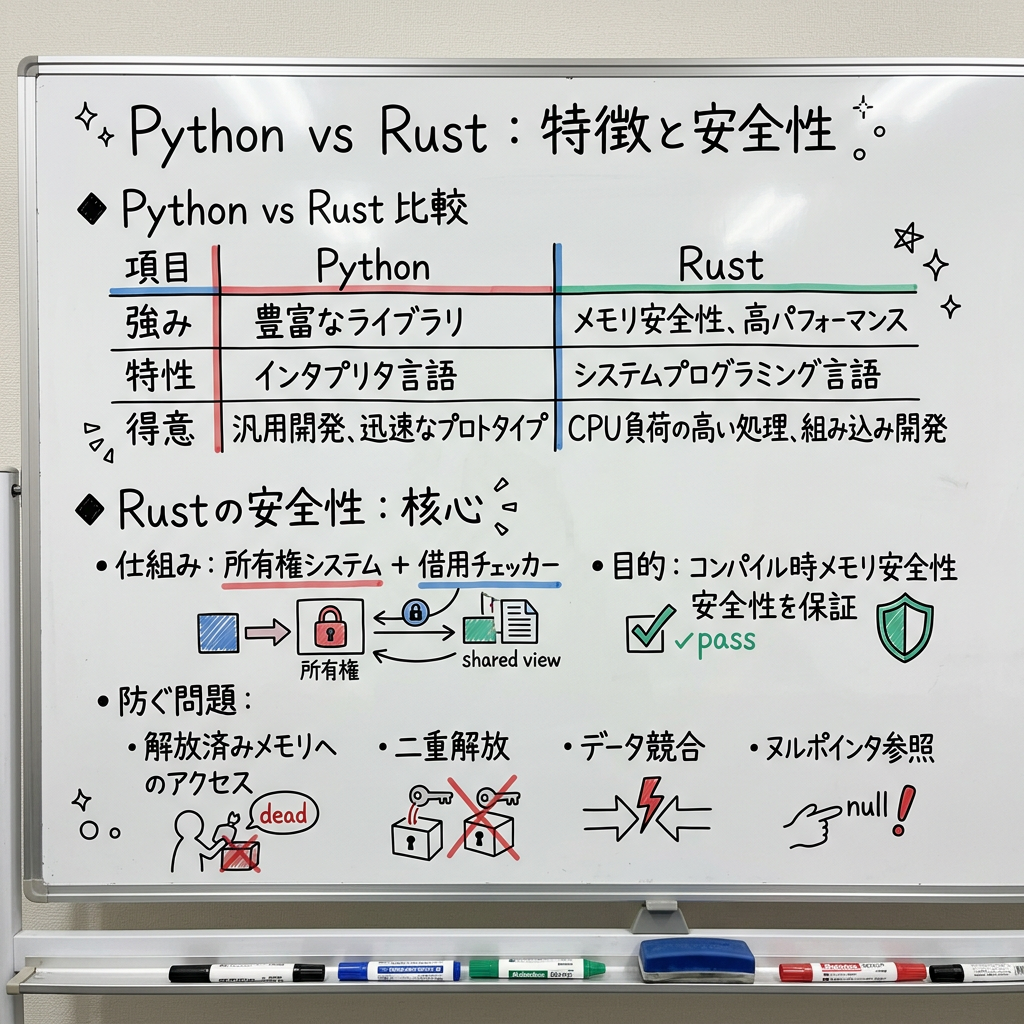 Python vs Rust：特徴と安全性
◆ Python vs Rust 比較
項目 Python Rust
強み 豊富なライブラリ メモリ安全性、高パフォーマンス
特性 インタプリタ言語 システムプログラミング言語
得意 汎用開発、迅速なプロトタイプ CPU負荷の高い処理、組み込み開発
◆ Rustの安全性：核心
・仕組み：所有権システム + 借用チェッカー
所有権
shared view
・目的：コンパイル時メモリ安全性
安全性を保証
✓pass
・防ぐ問題：
・解放済みメモリへ
のアクセス
dead
・二重解放
・データ競合
・ヌルポインタ参照
null!